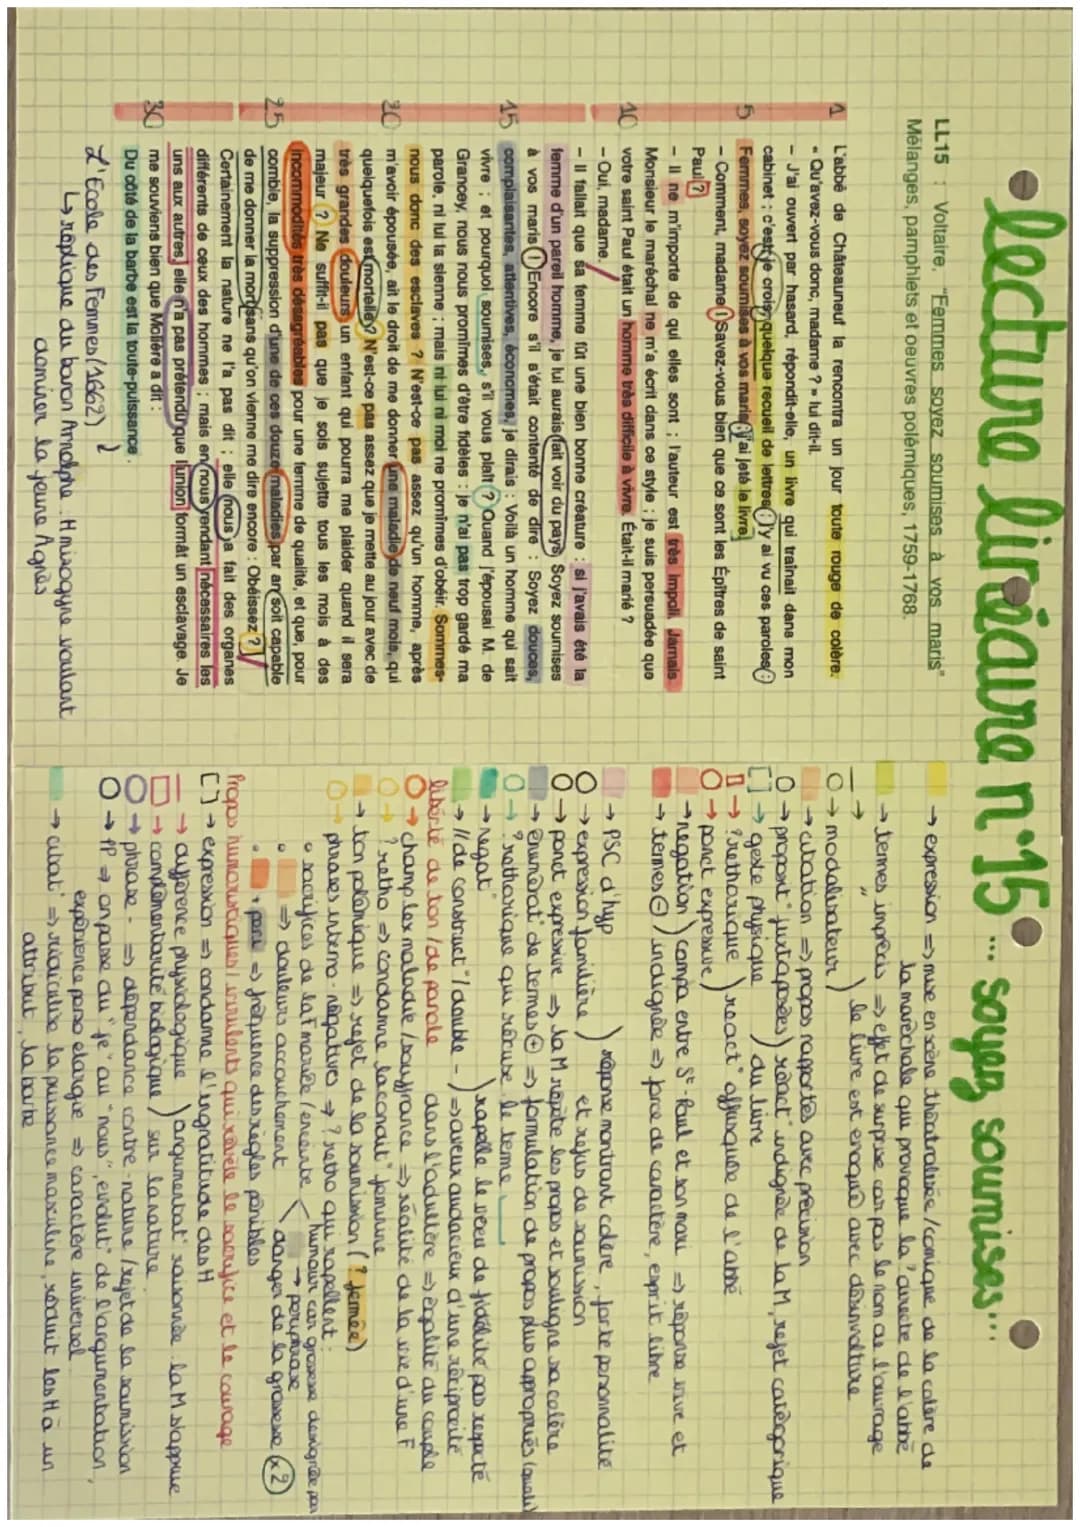 lecture linéaire n°15 ... soyez soumises...
LL15 : Voltaire, "Femmes soyez soumises à vos maris"
Mélanges, pamphlets et oeuvres polémiques, 1759-1768.
1 L'abbé de Châteauneuf la rencontra un jour toute rouge de colère.
« Qu'avez-vous donc, madame ? » lui dit-il.
– J'ai ouvert par hasard, répondit-elle, un livre qui traînait dans mon
cabinet ; c'est, je crois, quelque recueil de lettres ; j'y ai vu ces paroles :
5 Femmes, soyez soumises à vos maris ; j'ai jeté le livre.
– Comment, madame ! Savez-vous bien que ce sont les Épîtres de saint
Paul ?
– Il ne m'importe de qui elles sont ; l'auteur est très impoli. Jamais
Monsieur le maréchal ne m'a écrit dans ce style ; je suis persuadée que
10 votre saint Paul était un homme très difficile à vivre. Était-il marié ?
– Oui, madame.
– Il fallait que sa femme fût une bien bonne créature : si j'avais été la
femme d'un pareil homme, je lui aurais fait voir du pays. Soyez soumises
à vos maris ! Encore s'il s'était contenté de dire : Soyez douces,
15 complaisantes, attentives, économes, je dirais : Voilà un homme qui sait
vivre ; et pourquoi soumises, s'il vous plaît ? Quand j'épousai M. de
Grancey, nous nous promîmes d'être fidèles : je n'ai pas trop gardé ma
parole, ni lui la sienne ; mais ni lui ni moi ne promîmes d'obéir. Sommes-
nous donc des esclaves ? N'est-ce pas assez qu'un homme, après
20 m'avoir épousée, ait le droit de me donner une maladie de neuf mois, qui
quelquefois est mortelle ? N'est-ce pas assez que je mette au jour avec de
très grandes douleurs un enfant qui pourra me plaider quand il sera
majeur ? Ne suffit-il pas que je sois sujette tous les mois à des
incommodités très désagréables pour une femme de qualité, et que, pour
25 comble, la suppression d'une de ces douze maladies par an soit capable
de me donner la mort sans qu'on vienne me dire encore : Obéissez ?
Certainement la nature ne l'a pas dit ; elle nous a fait des organes
différents de ceux des hommes ; mais en nous rendant nécessaires les
uns aux autres, elle n'a pas prétendu que l'union formât un esclavage. Je
30 me souviens bien que Molière a dit :
Du côté de la barbe est la toute-puissance.
L'Ecole des Femmes (1662)
↳ réplique du baron Arnolphe : H misogyne voulant
dominer la jeune Agnès
→ expression => mise en scène théâtralisée / comique de la colère de
la maréchale qui provoque la directe de l'abbé
→ termes imprécis => effet de surprise car pas le nom de l'ouvrage
→ " ) le livre est évoqué avec désinvolture
→ modalisateur )
→ citation => propos rapportés avec précision
→ proposit° juxtaposées ) réact° indignée de la M, rejet catégorique
[ ] → geste physique ) du livre
→ ? rethorique ) react° offusquée de l'abbé
→ ponct expressive )
→ négation ) compa entre St-Paul et son mari => réponse vive et
→ termes ⊖ ) indignée => force de caractère, esprit libre
→ PSC d'hyp ) réponse montrant colère, forte personnalité
→ expression familière ) et refus de soumission
→ ponct expressive => la M répète les propos et souligne sa colère
→ énumérat° de termes ⊕ => formulation de propos plus appropriés (qualité)
→ ? rethorique qui récuse le terme
→ Négat° ) rapelle le voeu de fidélité pas respecté
→ // de construct° / double - ) => aveux audacieux d'une réciprocité
liberté de ton / de parole dans l'adultère => égalité du couple
→ champ lex maladie / souffrance => réalité de la vie d'une F
→ ? retho => condamne la condit° féminine
→ ton polémique => rejet de la soumission (? fermée)
→ phrases interro-négatives => ? retho qui rapellent :
• sacrifices de la F mariée / enceinte < humour car grossesse désignée par
→ périphrase
• => douleurs accouchement < danger de la grossesse (x2)
• + par => fréquence des règles pénibles
Propos humoristiques / virulents qui révèle le sacrifice et le courage
[ ] → expression => condamne l'ingratitude des H
→ différence physiologique ) argumentat° raisonnée la M s'appuie
→ complémentarité biologique ) sur la nature
→ phrase - => dépendance contre-nature / rejet de la soumission
→ PP => on passe du "je" au "nous", évolut° de l'argumentation,
expérience perso élargie => caractère universel
→ citat° => ridiculise la puissance masculine, réduit les H à un
attribut, la barbe